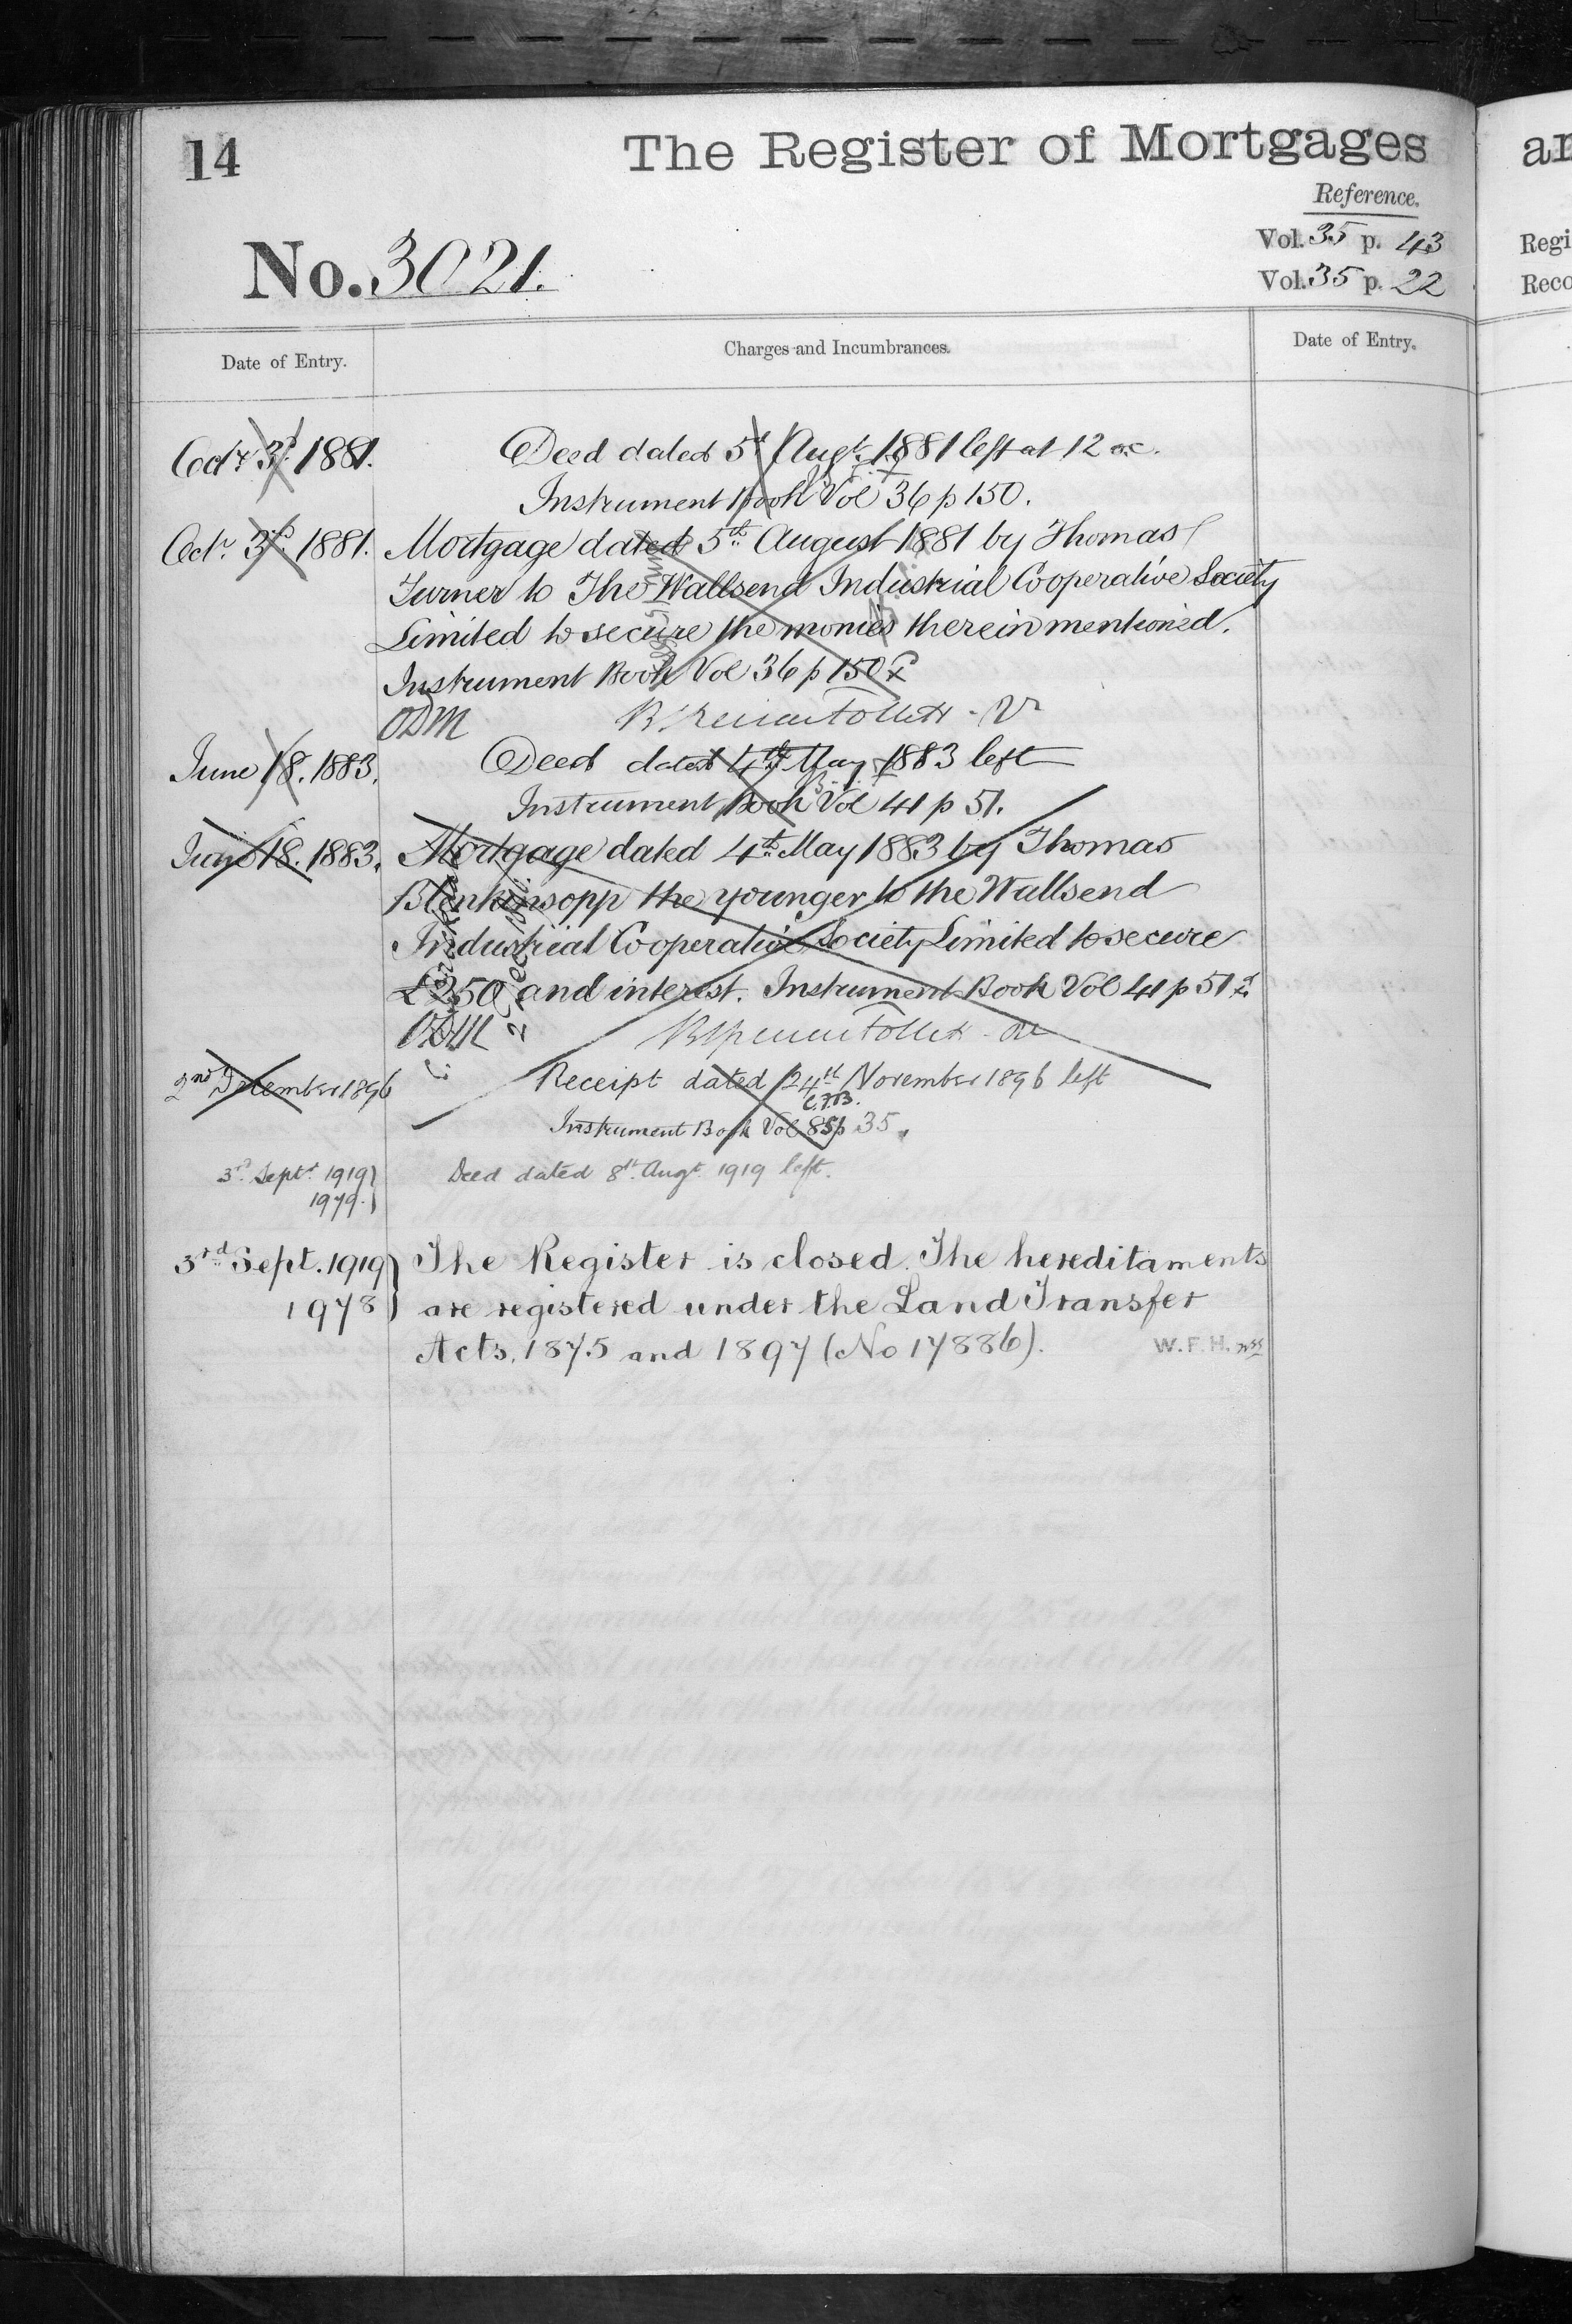 14
The Register of Mortgages
Reference.
No. 3021.
Vol. 35 p. 43
Vol. 35 p. 22
Date of Entry.
Charges and Incumbrances.
Date of Entry.
Octr 3d. 1881.
Deed dated 5th Augt. 1881 left at 12 oc.
Instrument Book Vol 36 p 150.
Octr. 3d. 1881.
Mortgage dated 5th August 1881 by Thomas
Turner to The Wallsend Industrial Cooperative Society
Limited to secure the monies therein mentioned.
Instrument Book Vol 36 p 150
ODM
June 18. 1883.
Deed dated 4th May 1883 left
Instrument Book Vol 41 p 51.
June 18. 1883.
Mortgage dated 4th May 1883 by Thomas
Blenkinsopp the younger to the Wallsend
Industrial Cooperative Society Limited to secure
£250 and interest. Instrument Book Vol 41 p 51
ODM
2nd December 1896
Receipt dated 24th November 1896 left
C.F.B.
Instrument Book Vol 85 p 35.
3rd. Sept. 1919
Deed dated 8th. Augt. 1919 left.
1979.
3rd Sept. 1919
The Register is closed. The hereditaments
1978
are registered under the Land Transfer
Acts, 1875 and 1897 (No 17886).
W.F.H.
ar
Regi
Reco